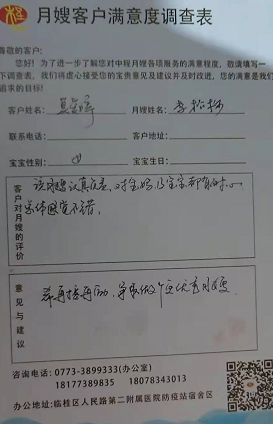 月嫂客户满意度调查表
尊敬的客户:
您好! 为了进一步了解您对中程月嫂各项服务的满意程度, 敬请填写一
下调查表。我们将虚心接受您的宝贵意见及建议并及时改进, 您的满意是我们
追求的目标!
客户姓名: 月嫂姓名:
联系电话: 客户地址:
宝宝性别: 宝宝生日:
客户对月嫂的评价
该月嫂认真负责, 对宝妈及宝宝都有耐心
总体感觉不错。
意见与建议
希再接再励, 争取做个更优秀月嫂
咨询电话: 0773-3899333(办公室)
18177389835 18078343013
办公地址: 临桂区人民路第二附属医院防疫站宿舍区